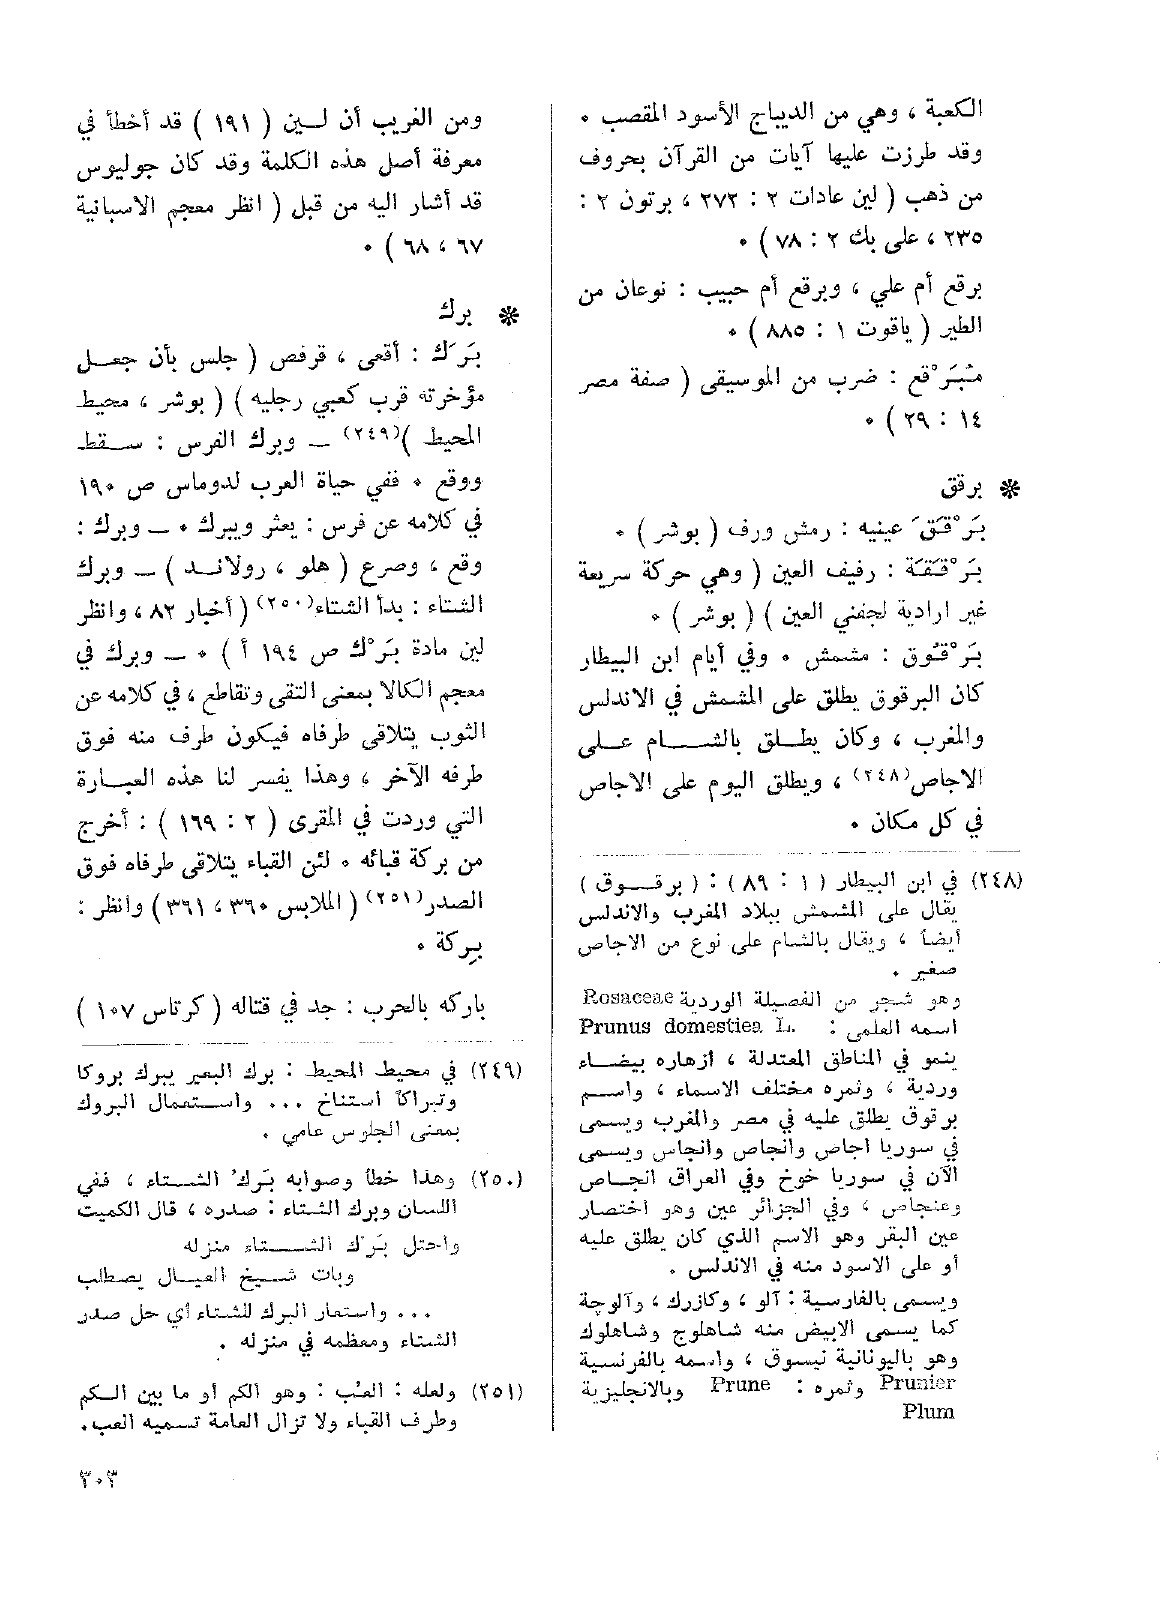 الكعبة ، وهي من الديباج الأسود المقصب .
وقد طرزت عليها آيات من القرآن بحروف
من ذهب ( لين عادات ٢ : ٢٧٢ ، برتون ٢ :
٢٣٥ ، على بك ٢ : ٧٨ ) .
برقع أم علي ، وبرقع أم حبيب : نوعان من
الطير ( ياقوت ١ : ٨٨٥ ) .
مُبَرْقع : ضرب من الموسيقى ( صفة مصر
١٤ : ٢٩ ) .
* برقق
بَرْقَقَ عينيه : رمش ورف ( بوشر ) .
بَرْقَقَة : رفيف العين ( وهي حركة سريعة
غير ارادية لجفني العين ) ( بوشر ) .
بَرْقُوق : مشمش . وفي أيام ابن البيطار
كان البرقوق يطلق على المشمش في الاندلس
والمغرب ، وكان يطلق بالشام على
الاجاص(٢٤٨) ، ويطلق اليوم على الاجاص
في كل مكان .
(٢٤٨) في ابن البيطار ( ١ : ٨٩ ) : ( برقوق )
يقال على المشمش ببلاد المغرب والاندلس
أيضاً ، ويقال بالشام على نوع من الاجاص
صغير .
وهو شجر من الفصيلة الوردية Rosaceae
اسمه العلمي : Prunus domestiea L.
ينمو في المناطق المعتدلة ، ازهاره بيضاء
وردية ، وثمره مختلف الاسماء ، واسم
برقوق يطلق عليه في مصر والمغرب ويسمى
في سوريا اجاص وانجاص وانجاس ويسمى
الآن في سوريا خوخ وفي العراق انجاص
وعنجاص ، وفي الجزائر عين وهو اختصار
عين البقر وهو الاسم الذي كان يطلق عليه
أو على الاسود منه في الاندلس .
ويسمى بالفارسية : آلو ، وكازرك ، وآلوچة
كما يسمى الابيض منه شاهلوج وشاهلوك
وهو باليونانية نيسوق ، واسمه بالفرنسية
Prunier وثمره : Prune وبالانجليزية
Plum
ومن الغريب أن لين ( ١٩١ ) قد أخطأ في
معرفة أصل هذه الكلمة وقد كان جوليوس
قد أشار اليه من قبل ( انظر معجم الاسبانية
٦٧ ، ٦٨ ) .
* برك
بَرَك : أقعى ، قرفص ( جلس بأن جعل
مؤخرته قرب كعبي رجليه ) ( بوشر ، محيط
المحيط )(٢٤٩) ــ وبرك الفرس : سقط
ووقع . ففي حياة العرب لدوماس ص ١٩٠
في كلامه عن فرس : يعثر ويبرك . ــ وبرك :
وقع ، وصرع ( هلو ، رولاند ) ــ وبرك
الشتاء : بدأ الشتاء(٢٥٠) ( أخبار ٨٢ ، وانظر
لين مادة بَرْك ص ١٩٤ أ ) . ــ وبرك في
معجم الكالا بمعنى التقى وتقاطع ، في كلامه عن
الثوب يتلاقى طرفاه فيكون طرف منه فوق
طرفه الآخر ، وهذا يفسر لنا هذه العبارة
التي وردت في المقرى ( ٢ : ١٦٩ ) : أخرج
من بركة قبائه . لئن القباء يتلاقى طرفاه فوق
الصدر(٢٥١) ( الملابس ٣٦٠ ، ٣٦١ ) وانظر :
بِركة .
باركه بالحرب : جد في قتاله ( كرتاس ١٠٧ )
(٢٤٩) في محيط المحيط : برك البعير يبرك بروكا
وتبراكاً استناخ ... واستعمال البروك
بمعنى الجلوس عامي .
(٢٥٠) وهذا خطأ وصوابه بَرْكُ الشتاء ، ففي
اللسان وبرك الشتاء : صدره ، قال الكميت
واحتل بَرْك الشتاء منزله
وبات شيخ العيال يصطلب
... واستعار البرك للشتاء أي حل صدر
الشتاء ومعظمه في منزله .
(٢٥١) ولعله : العُب : وهو الكم أو ما بين الكم
وطرف القباء ولا تزال العامة تسميه العب.
٣٠٣